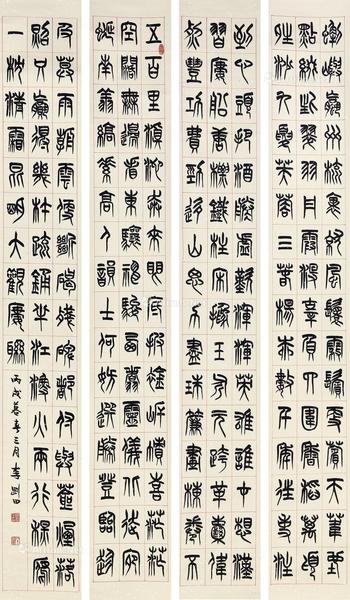 五百里滇池奔來眼底披襟岸幘喜茫茫
空闊無邊看東驤神駿西翥靈儀北走蜿
蜒南翔縞素高人韻士何妨選勝登臨趁
蟹嶼螺洲梳裹就風鬟霧鬢更蘋天葦地
點綴些翠羽丹霞莫辜負四圍香稻萬頃
晴沙九夏芙蓉三春楊柳數千年往事注
到心頭把酒凌虛歎滾滾英雄誰在想漢
習樓船唐標鐵柱宋揮玉斧元跨革囊偉
烈豐功費盡移山心力盡珠簾畫棟捲不
及暮雨朝雲便斷碣殘碑都付與蒼煙落
照只贏得幾杵疏鐘半江漁火兩行秋雁
一枕清霜昆明大觀樓聯
丙戌暮春三月李剛田